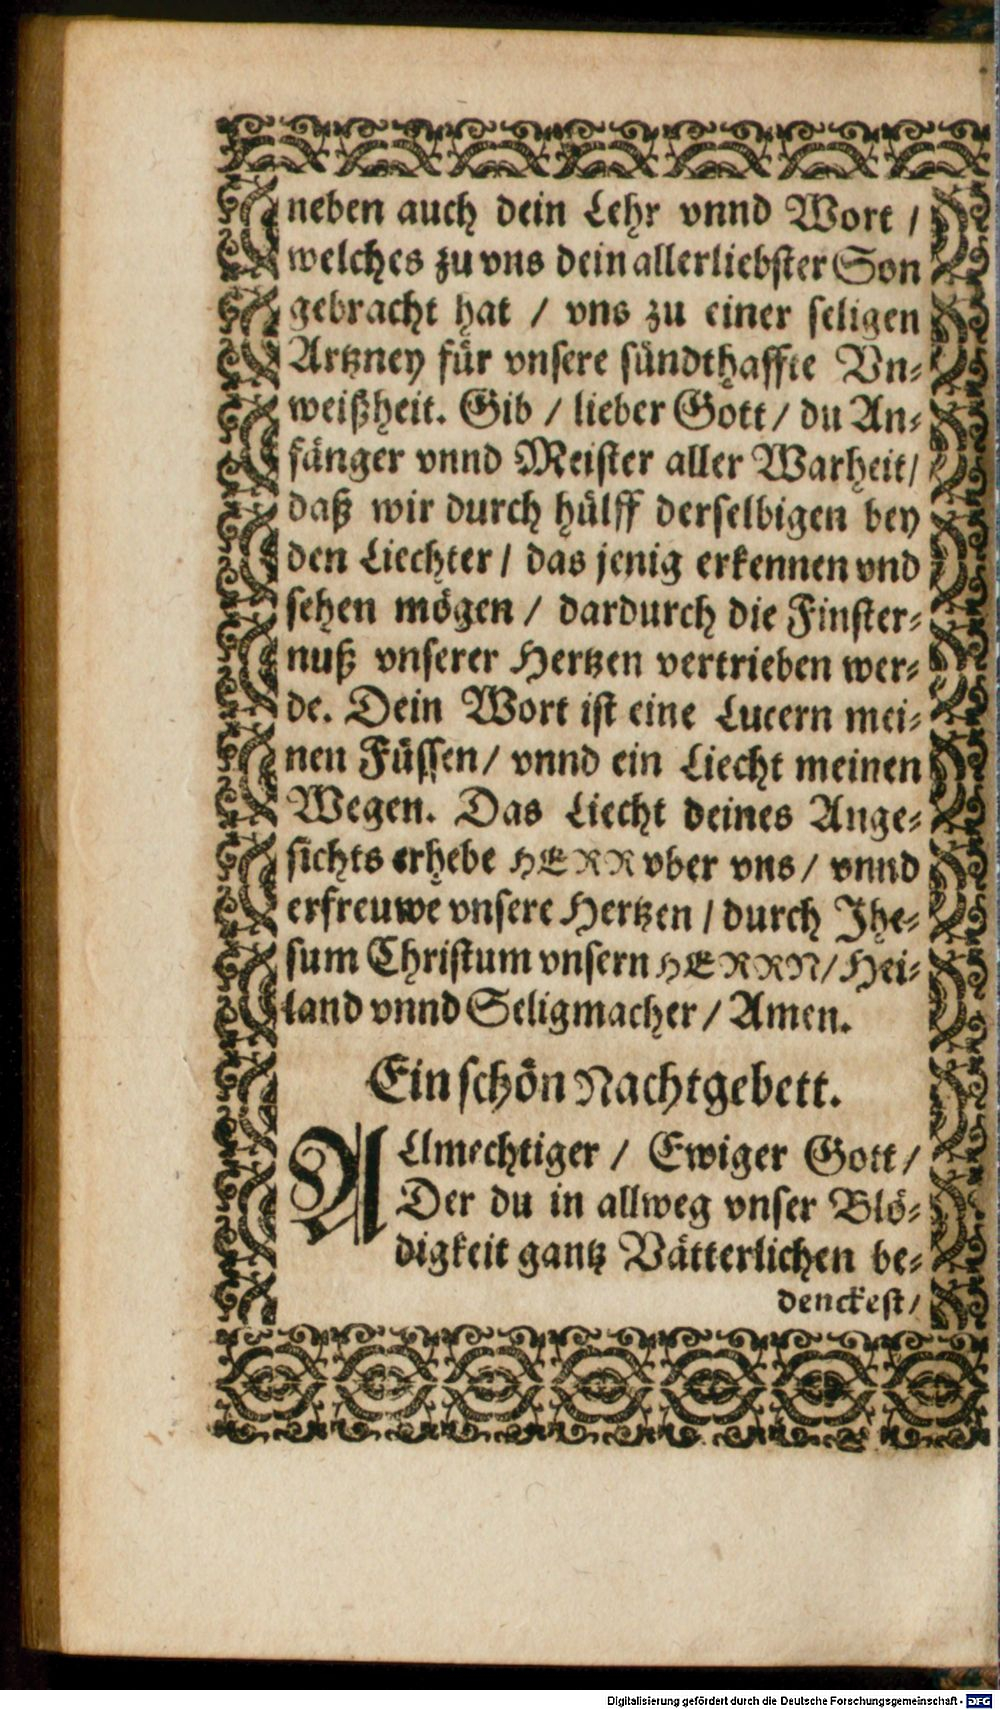 neben auch dein Lehr vnnd Wort /
welches zu vns dein allerliebster Son
gebracht hat / vns zu einer seligen
Artzney für vnsere sündthaffte Vn⸗
weißheit. Gib / lieber Gott / du An⸗
fänger vnnd Meister aller Warheit /
daß wir durch hülff derselbigen bey
den Liechter / das jenig erkennen vnd
sehen mögen / dardurch die Finster⸗
nuß vnserer Hertzen vertrieben wer⸗
de. Dein Wort ist eine Lucern mei⸗
nen Füssen / vnnd ein Liecht meinen
Wegen. Das Liecht deines Ange⸗
sichts erhebe HERR vber vns / vnnd
erfreuwe vnsere Hertzen / durch Jhe⸗
sum Christum vnsern HERRN / Hei⸗
land vnnd Seligmacher / Amen.
Ein schön Nachtgebett.
ALlmechtiger / Ewiger Gott /
Der du in allweg vnser Blö⸗
digkeit gantz Vätterlichen be⸗
denckest /
Digitalisierung gefördert durch die Deutsche Forschungsgemeinschaft - DFG